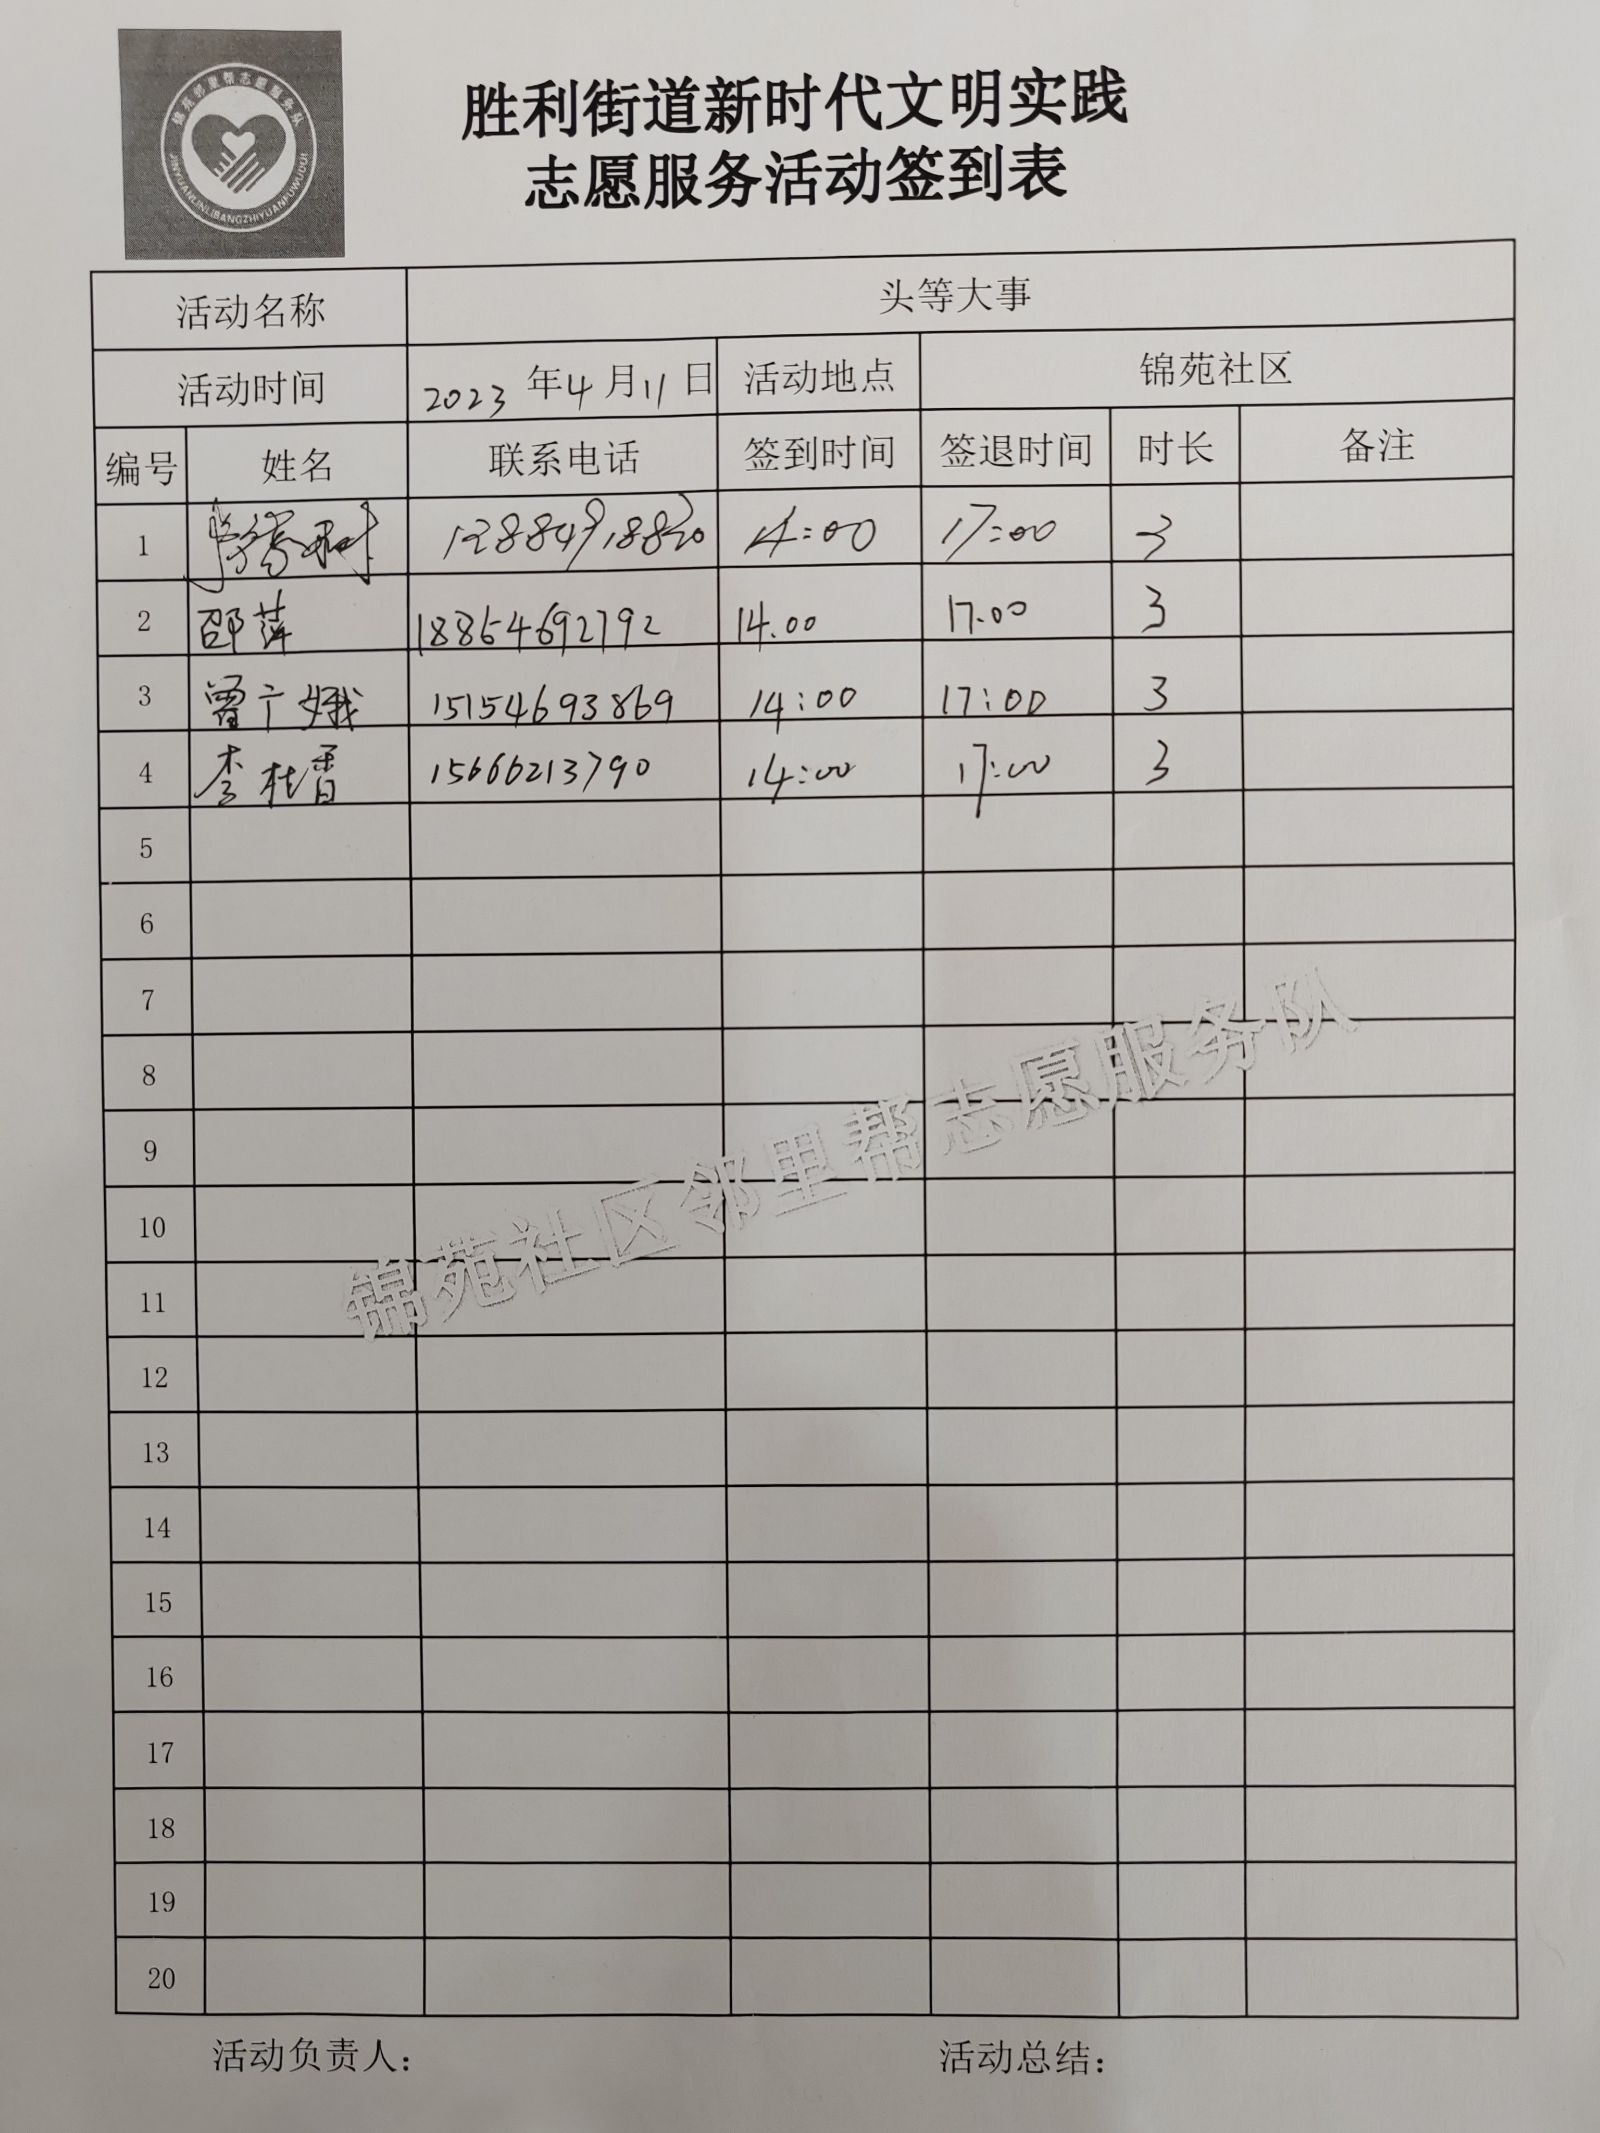 锦苑邻里帮志愿服务队
JINYUANLINLIBANGZHIYUANFUWUDUI
胜利街道新时代文明实践
志愿服务活动签到表
活动名称 头等大事
活动时间 2023年4月11日 活动地点 锦苑社区
编号 姓名 联系电话 签到时间 签退时间 时长 备注
1 14:00 17:00 3
2 邵萍 18854692792 14.00 17.00 3
3 曾广娥 15154693869 14:00 17:00 3
4 李桂香 15666213790 14:00 17:00 3
5
6
7
8
9
10
11
12
13
14
15
16
17
18
19
20
锦苑社区邻里帮志愿服务队
活动负责人： 活动总结：